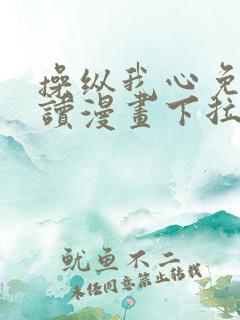 操纵我心免
读漫畫下拉
鱿鱼不二
未经同意禁止转载